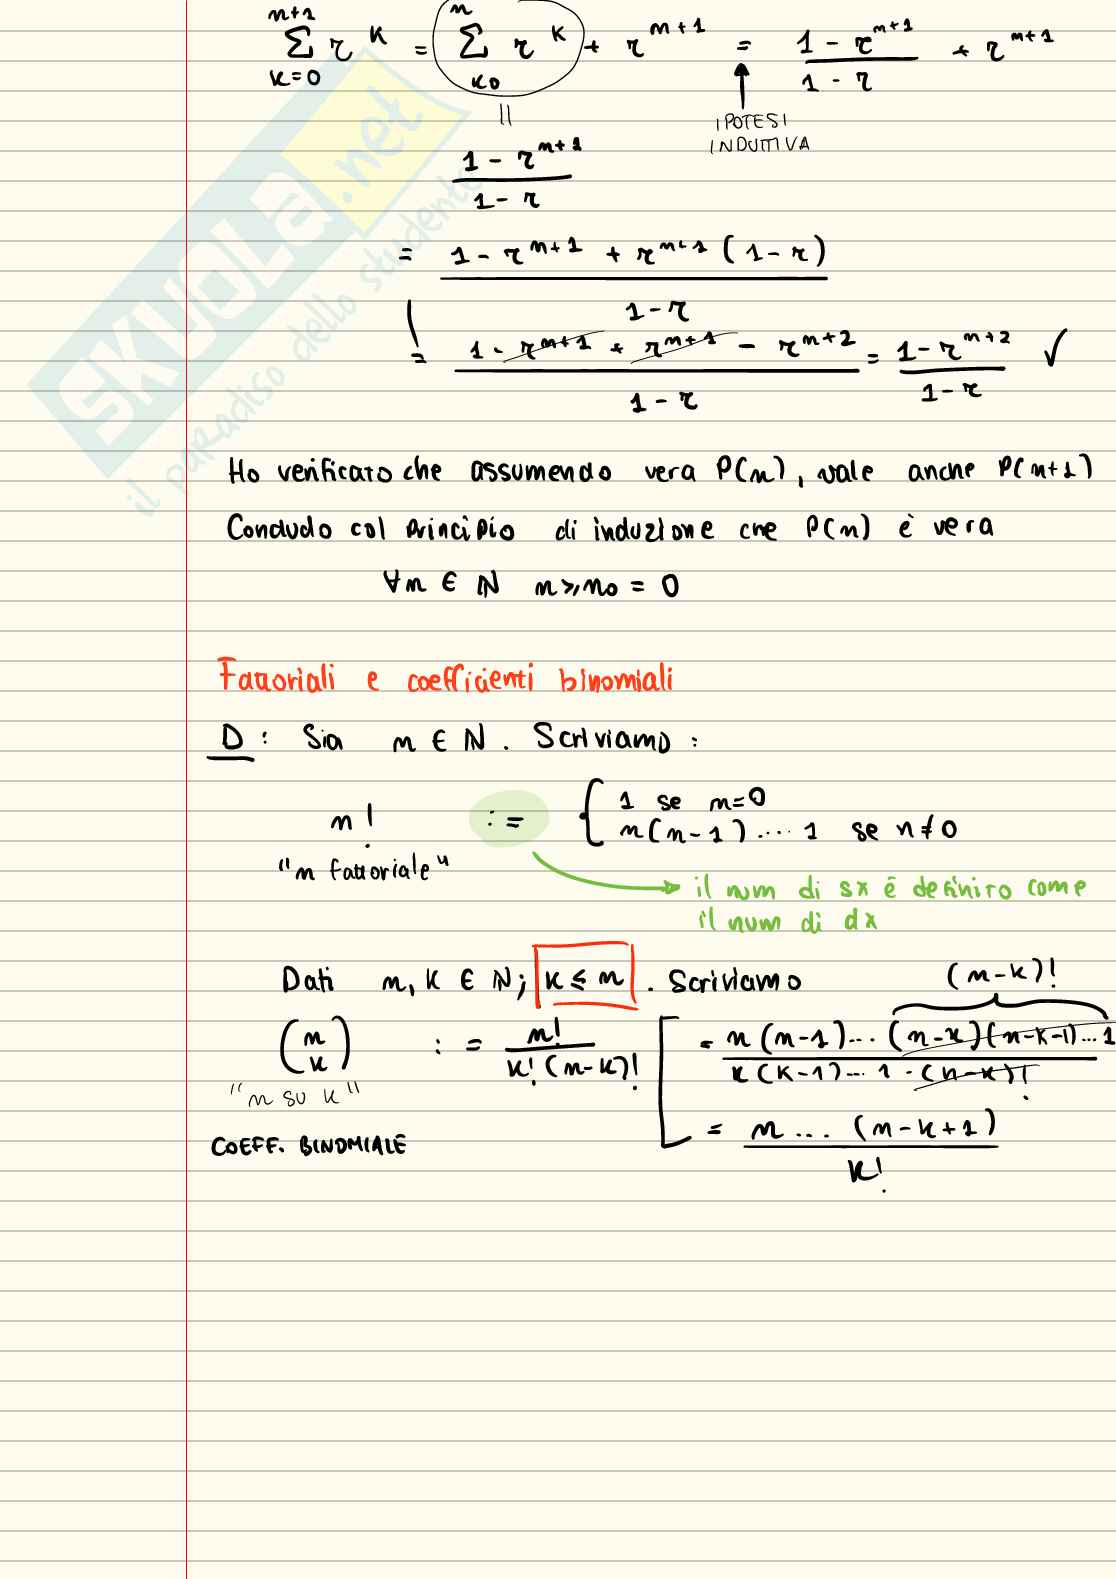 n+1 Σ k=0 r^k = n Σ k0 r^k + r^(n+1) = (1 - r^(n+1))/(1 - r) + r^(n+1)
||
IPOTESI
INDUTTIVA
(1 - r^(n+1))/(1 - r)
= (1 - r^(n+1) + r^(n+1) (1 - r))/(1 - r)
= (1 - r^(n+1) + r^(n+1) - r^(n+2))/(1 - r) = (1 - r^(n+2))/(1 - r) ✓
Ho verificato che assumendo vera P(n), vale anche P(n+1)
Concludo col principio di induzione che P(n) è vera
∀n ∈ ℕ n ≥ n0 = 0
Fattoriali e coefficienti binomiali
D : Sia n ∈ ℕ. Scriviamo :
n! := { 1 se n=0
n(n-1)....1 se n≠0
"n fattoriale"
il num di sx è definito come
il num di dx
Dati n, k ∈ ℕ; k ≤ n . Scriviamo
(n-k)!
(n k) := n!/(k!(n-k)!) [ = (n(n-1)...(n-k)(n-k-1)...1)/(k(k-1)...1 · (n-k)!)
"n su k"
= (n...(n-k+1))/k!
COEFF. BINOMIALE
SKUOLA.net
il paradiso dello studente